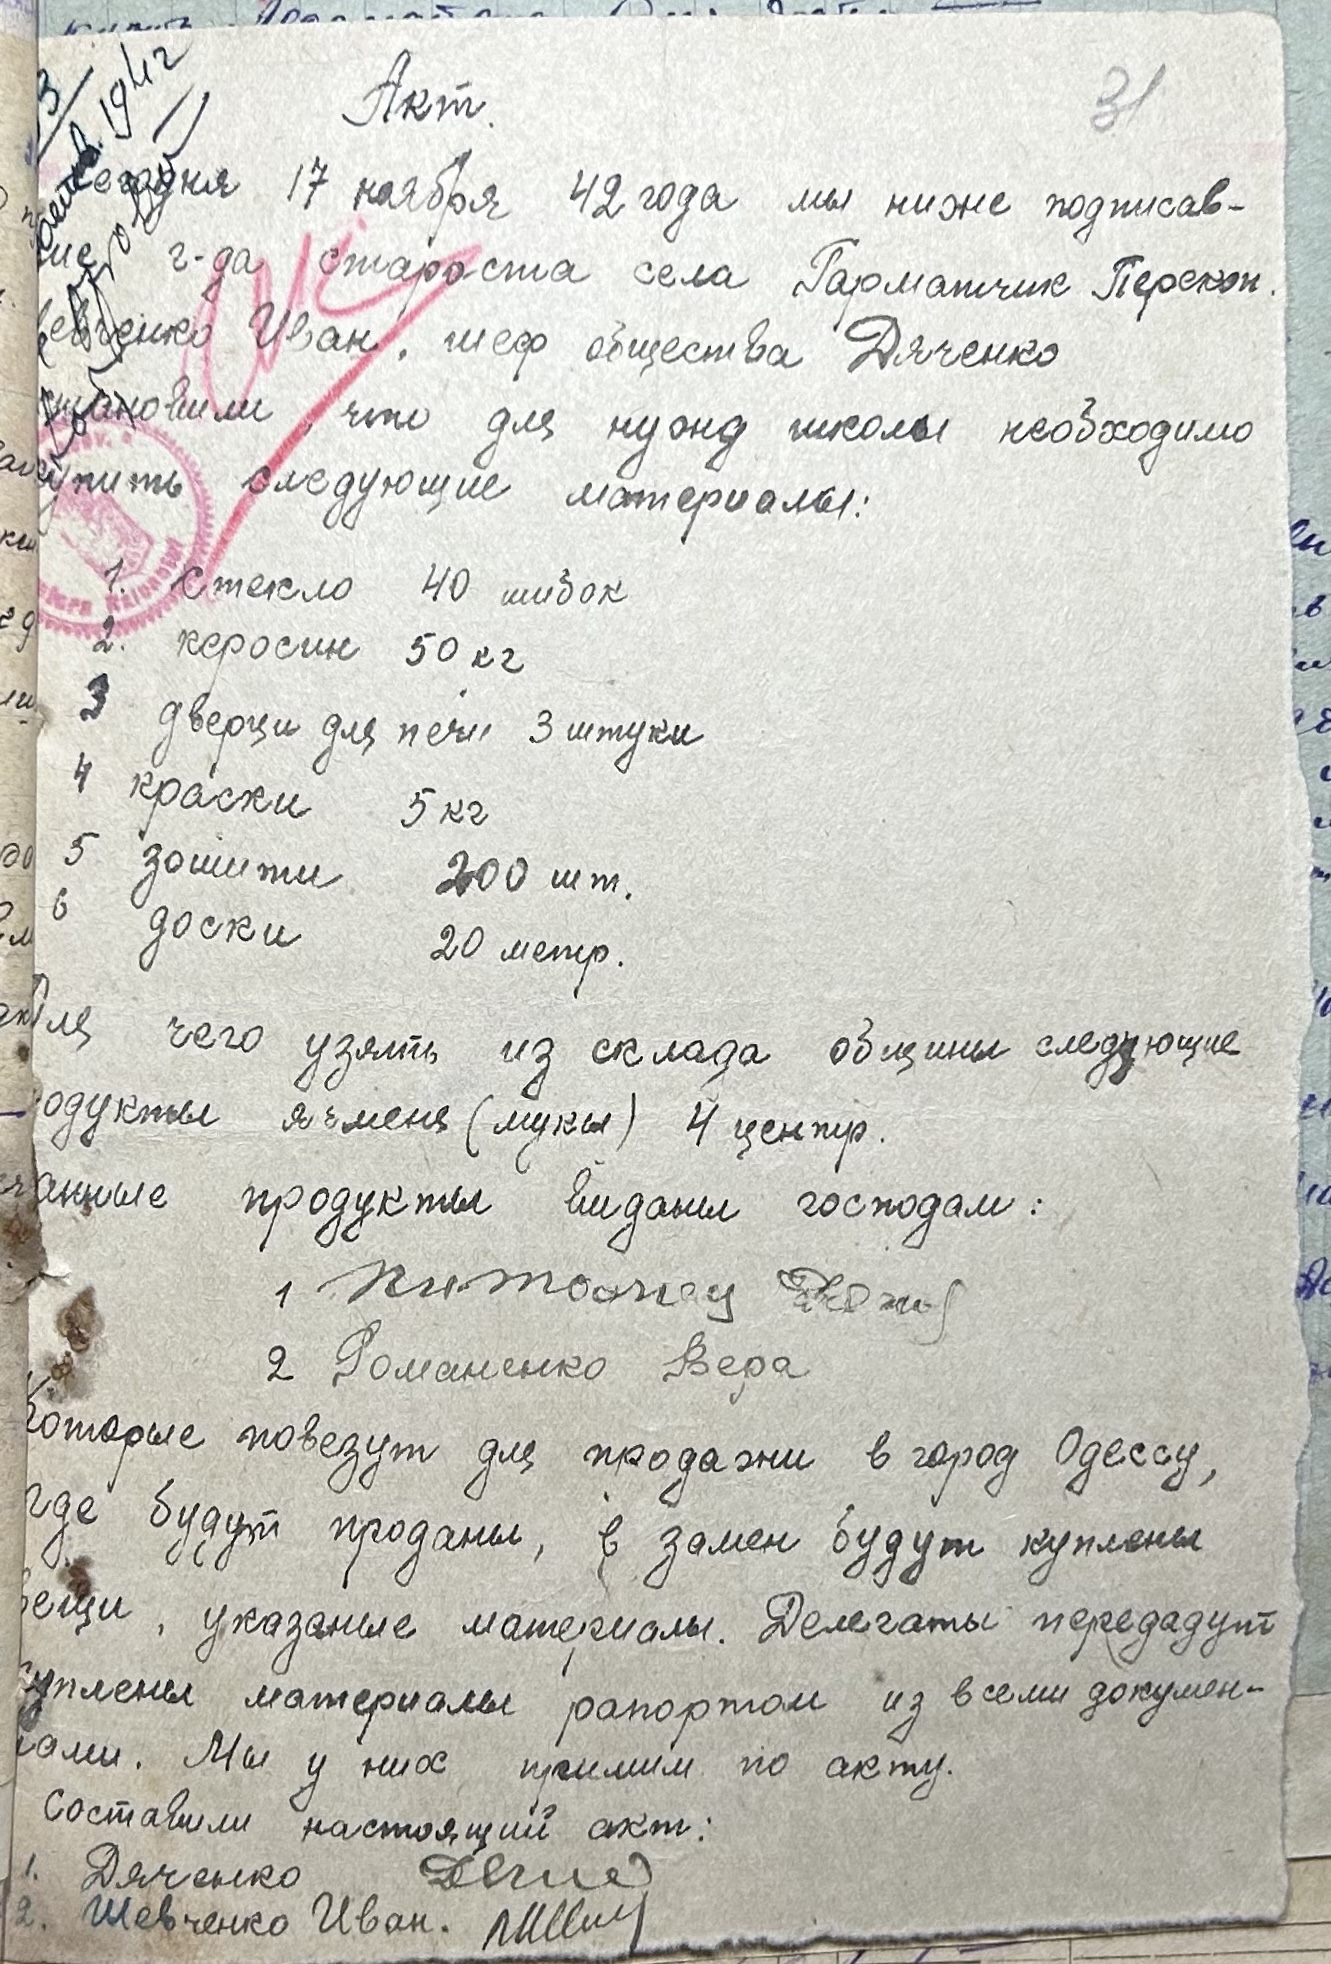 Акт.
31
1942
Сегодня 17 ноября 42 года мы ниже подписав-
шие г-да староста села Гарматчик Перекоп.
Шевченко Иван, шеф общества Дяченко
становили, что для нужд школы необходимо
купить следующие материалы:
1. Стекло 40 шибок
2. керосин 50 кг
3 дверци для печи 3 штуки
4 краски 5 кг
5 зошити 200 шт.
6 доски 20 метр.
Для чего узять из склада общины следующие
одукты ячменя (мукы) 4 центр.
анные продукты видани господам:
1
2 Романенко Вера
Которые повезут для продажи в город Одессу,
где будут проданы, в замен будут куплены
вещи, указаные материалы. Делегаты передадут
куплены материалы рапортом из всеми докумен-
тами. Мы у них примим по акту.
Составили настоящий акт:
1. Дяченко
2. Шевченко Иван.